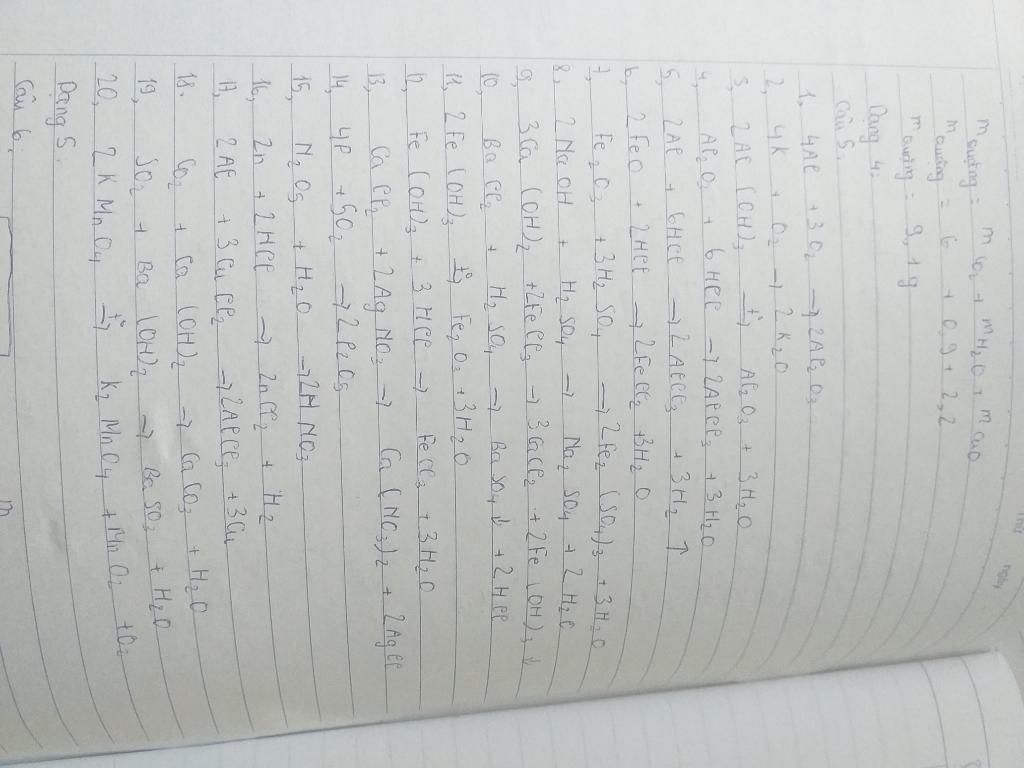 m quặng = m CO2 + m H2O + m CuO
m quặng = 6 + 0,9 + 2,2
m quặng = 9,1g
Dạng 4.
Câu 5.
1, 4Al + 3O2 → 2Al2O3
2, 4K + O2 → 2K2O
3, 2Al(OH)3 t°→ Al2O3 + 3H2O
4, Al2O3 + 6HCl → 2AlCl3 + 3H2O
5, 2Al + 6HCl → 2AlCl3 + 3H2 ↑
6, 2FeO + 2HCl → 2FeCl2 + 3H2O
7, Fe2O3 + 3H2SO4 → 2Fe2(SO4)3 + 3H2O
8, 2NaOH + H2SO4 → Na2SO4 + 2H2O
9, 3Ca(OH)2 + 2FeCl3 → 3CaCl2 + 2Fe(OH)3 ↓
10, BaCl2 + H2SO4 → BaSO4 ↓ + 2HCl
11, 2Fe(OH)3 t°→ Fe2O3 + 3H2O
12, Fe(OH)3 + 3HCl → FeCl3 + 3H2O
13, CaCl2 + 2AgNO3 → Ca(NO3)2 + 2AgCl
14, 4P + 5O2 → 2P2O5
15, N2O5 + H2O → 2HNO3
16, Zn + 2HCl → ZnCl2 + H2
17, 2Al + 3CuCl2 → 2AlCl3 + 3Cu
18. CO2 + Ca(OH)2 → CaCO3 + H2O
19, SO2 + Ba(OH)2 → BaSO3 + H2O
20, 2KMnO4 t°→ K2MnO4 + MnO2 + O2
Dạng 5.
Câu 6.